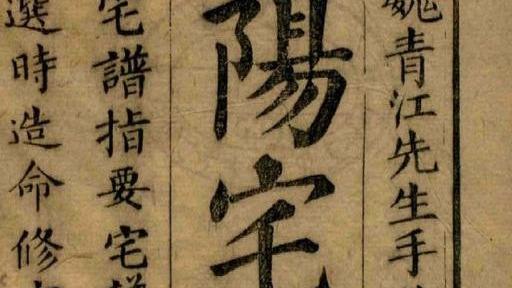 魏青江先生手
陽宅
宅譜指要宅
選時造命修